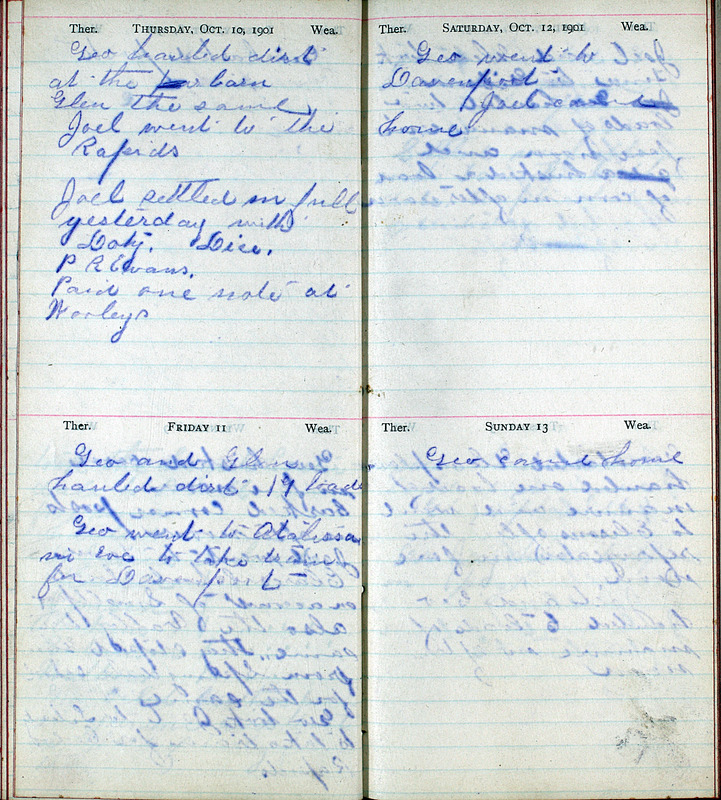 Ther. THURSDAY, OCT. 10, 1901 Wea.
Geo hauled dirt
at the barn
Glen the same
Joel went to the
Rapids
Joel settled in full
yesterday with
Doty. Dice.
P R Evans.
Paid one note at
Worleys
Ther. FRIDAY 11 Wea.
Geo and Glen
hauled dirt 19 loads
Geo went to Atalissa
in Eve to take train
for Davenport
Ther. SATURDAY, OCT. 12, 1901 Wea.
Geo went to
Davenport
Joel came
home
Ther. SUNDAY 13 Wea.
Geo came home